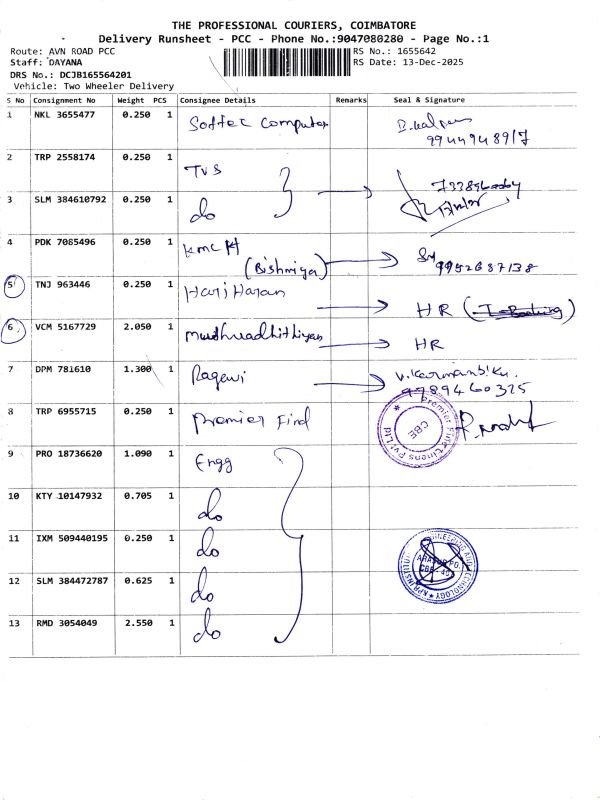 THE PROFESSIONAL COURIERS, COIMBATORE
Delivery Runsheet - PCC - Phone No.:9047080280 - Page No.:1
Route: AVN ROAD PCC RS No.: 1655642
Staff: DAYANA RS Date: 13-Dec-2025
DRS No.: DCJB165564201
Vehicle: Two Wheeler Delivery
S No Consignment No Weight PCS Consignee Details Remarks Seal & Signature
1 NKL 3655477 0.250 1 Softec Computer
9944948917
2 TRP 2558174 0.250 1 TVS
3 SLM 384610792 0.250 1 do
4 PDK 7085496 0.250 1 KMCH
(Bishmiya) 9952687138
5 TNJ 963446 0.250 1 Hari Haran HR
6 VCM 5167729 2.050 1 HR
7 DPM 781610 1.300 1 Ragavi
9789460325
8 TRP 6955715 0.250 1 Premier Find
Premier Fine Linens Pvt Ltd
CBE
9 PRO 18736620 1.090 1 Engg
10 KTY 10147932 0.705 1 do
11 IXM 509440195 0.250 1 do
12 SLM 384472787 0.625 1 do
13 RMD 3054049 2.550 1 do